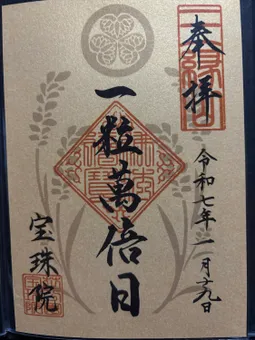 奉拝
令和七年一月十九日
一粒萬倍日
宝珠院